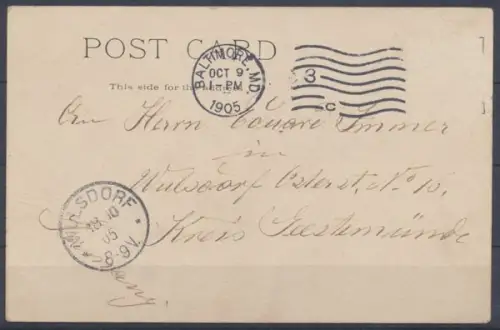 POST CARD
This side for the
BALTIMORE, MD.
OCT 9
1905
3
C
An Herrn Eduard Immer
in
Wulsdorf Osterst. No 10.
Kreis Geestemünde
WULSDORF
18 10
05
8-9V.
Germany.